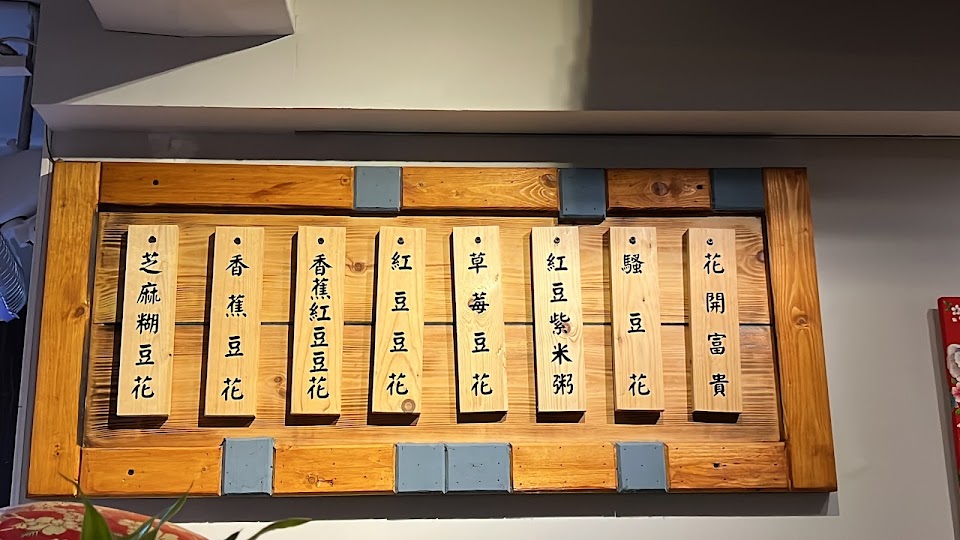 花開富貴
騷豆花
紅豆紫米粥
草莓豆花
紅豆豆花
香蕉紅豆豆花
香蕉豆花
芝麻糊豆花